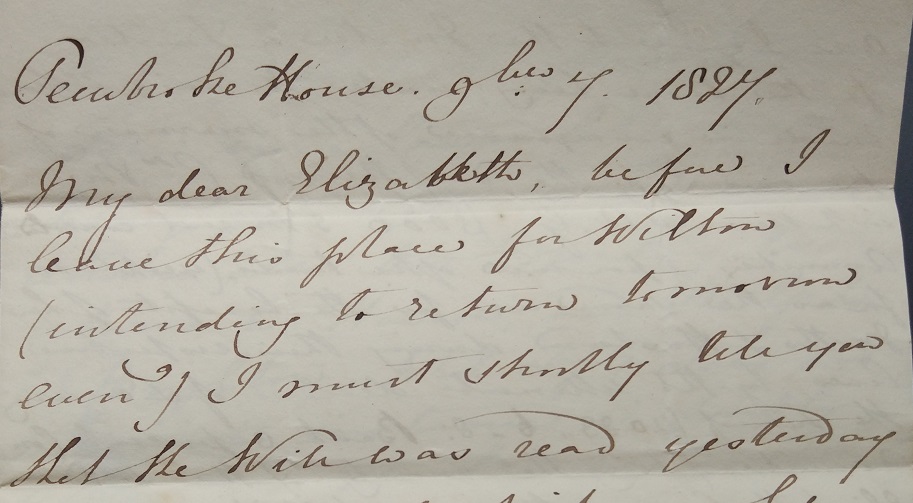 Pembroke House. 9ber 7. 1827.
My dear Elizabeth, before I
leave this place for Wilton
(intending to return tomorrow
eveng) I must shortly tell you
that the Will was read yesterday